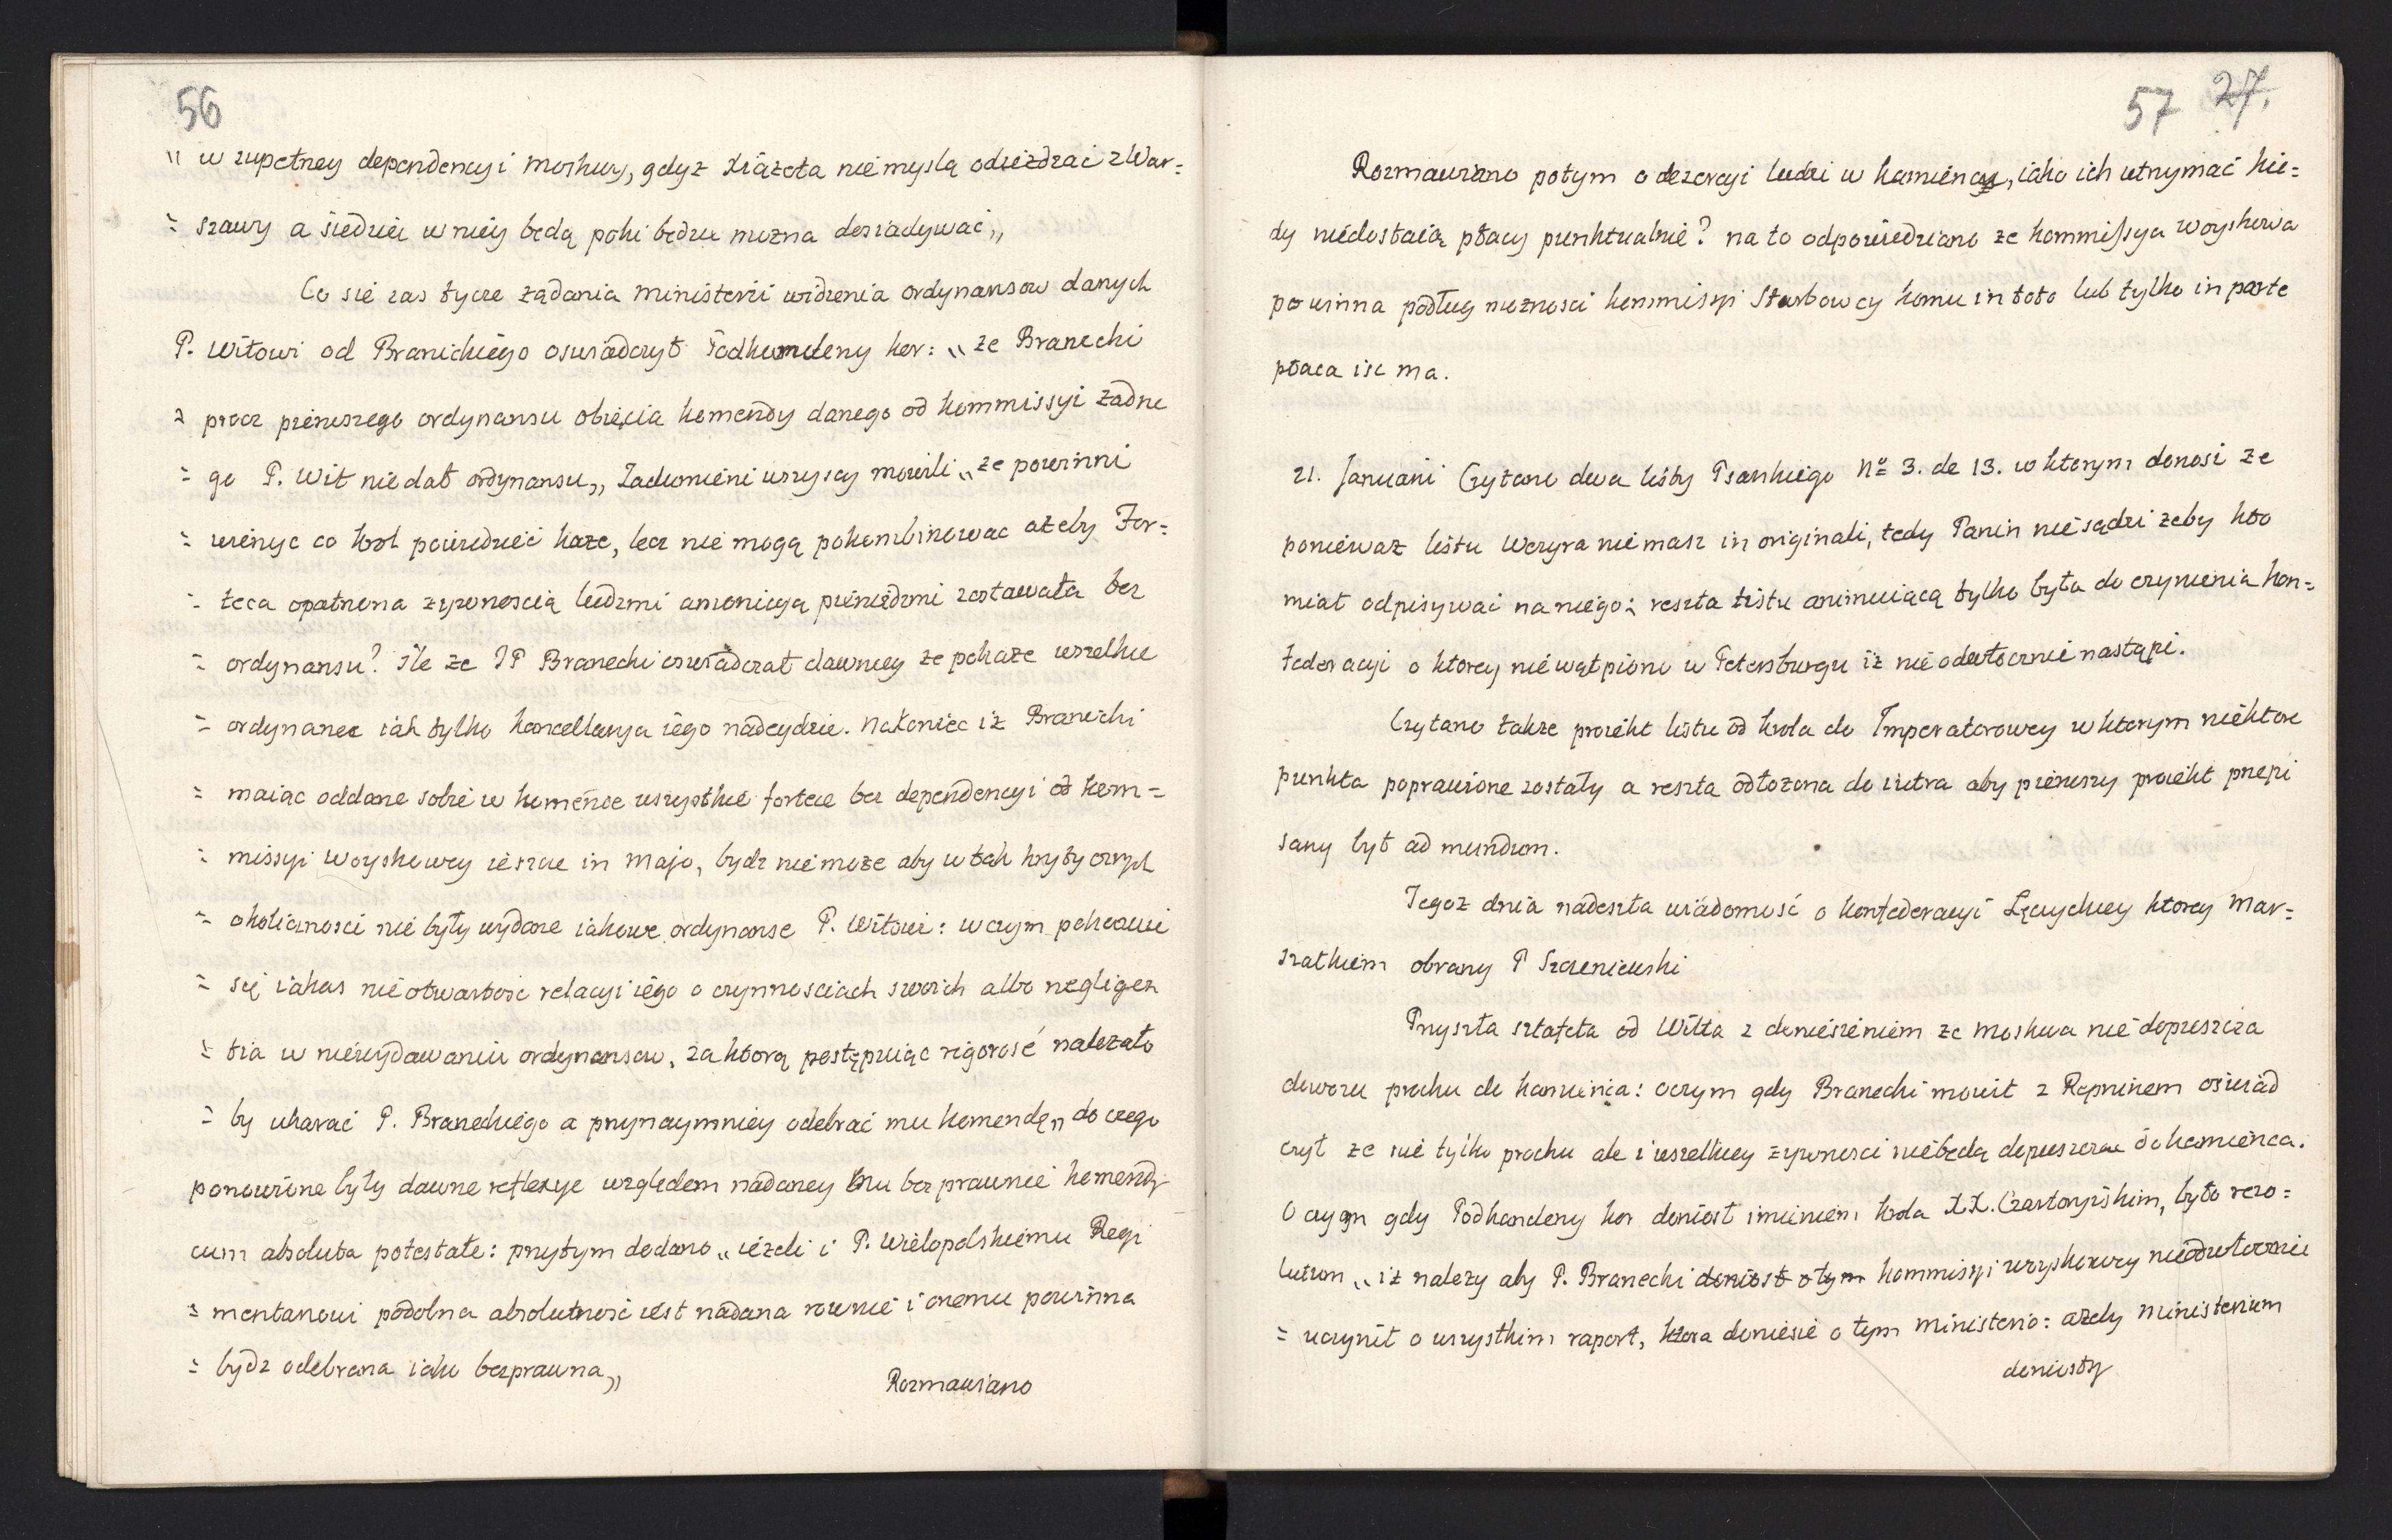 56
" w zupełney dependencyi Moskwy, gdyz Xiązeta nie myslą odieżdzać z War=
= szawy a siedziec w niey będą poki będzie mozna dosiadywać„
Co się zas tycze żądania Ministerii widzenia ordynansow danych
P. Witowi od Branickiego oswiadczył Podkomdeny kor: „ ze Branecki
= procz pierwszego ordynansu obięcia komendy danego od kommissyi żadne
= go P. Wit nie dał ordynansu„ Zadumieni wszyscy mowili „ze powinni
= wierzyc co krol powiedzieć każe, lecz nie mogą pokombinowac ażeby For=
= teca opatrzona zywnoscią ludzmi amonicyą pieniędzmi zostawała bez
= ordynansu? ile ze JP Branecki oswiadczał dawniey ze pokaże wszelkie
= ordynanse iak tylko kancellarya iego nadeydzie. Nakoniec iż Branicki
= maiac oddane sobie w komendę wszystkie fortece bez dependencyi od kom=
= missyi Woyskowey ieszcze in Majo, bydz nie może aby w tak krytycznych
= okolicznosci nie były wydane iakowe ordynanse P. Witowi: w czym pokazuie
= się iakas nie otwartość relacyi iego o czynnosciach swoich albo negligen
= tia w niewydawaniu ordynansow, za ktorą postępuiąc rigorosé nalezało
= by ukarać P. Braneckiego a przynaymniey odebrać mu komendę„ do czego
ponowione były dawne reflexye względem nadaney mu bezprawnie komendy
cum absoluta potestate: przytym dodano „iézeli i P. Wielopolskiemu Regi
= mentarzowi podobna absolutność iest nadana rownie i onemu powinna
= bydz odebrana iako bezprawna„
Rozmawiano
57 27.
Rozmawiano potym o dezercyi ludzi w kamiencu, iako ich utrzymać kie=
dy niedostaią płacy punktualnie? na to odpowiedziano ze kommissya woyskowa
powinna podług moznosci kommisyi Skarbowey komu in toto lub tylko in parte
płaca isc ma.
21. Januarii Czytano dwa listy Psarskiego No 3. de 13. w ktorym donosi ze
poniewaz listu Weryra nie masz in originali, tedy Panin nie sądzi zeby kto
miał odpisywać na niego; reszta listu animuiącą tylko była do czynienia kon=
federacyi o ktorey nie wątpiono w Petersburgu iż nieodwłocznie nastąpi.
Czytano takze proiekt listu od krola do Imperatorowey w ktorym niektore
punkta poprawione zostały a reszta odłozona do iutra aby pierwszy proiekt przepi
sany był ad mundum.
Tegoz dnia nadeszła wiadomość o konfederacyi Łęczyckiey ktorey Mar=
szałkiem obrany P Szczeniewski
Przyszła sztafeta od Witta z doniesieniem ze Moskwa nie dopuszcza
dowozu prochu do kamieńca: o czym gdy Branecki mowił z Repninem oświad
czył ze nie tylko prochu ale i wszelkiey żywnosci nie będą dopuszczac do kamieńca.
O czym gdy Podkomdeny kor doniosł imieniem krola XX. Czartoryiskim, było rezo=
lutum „iż nalezy aby P. Branecki doniosł o tym kommisyi woyskowey nieodwłocznie
= uczynił o wszystkim raport, ktora doniesie o tym Ministerio: ażeby Ministerium
doniosły